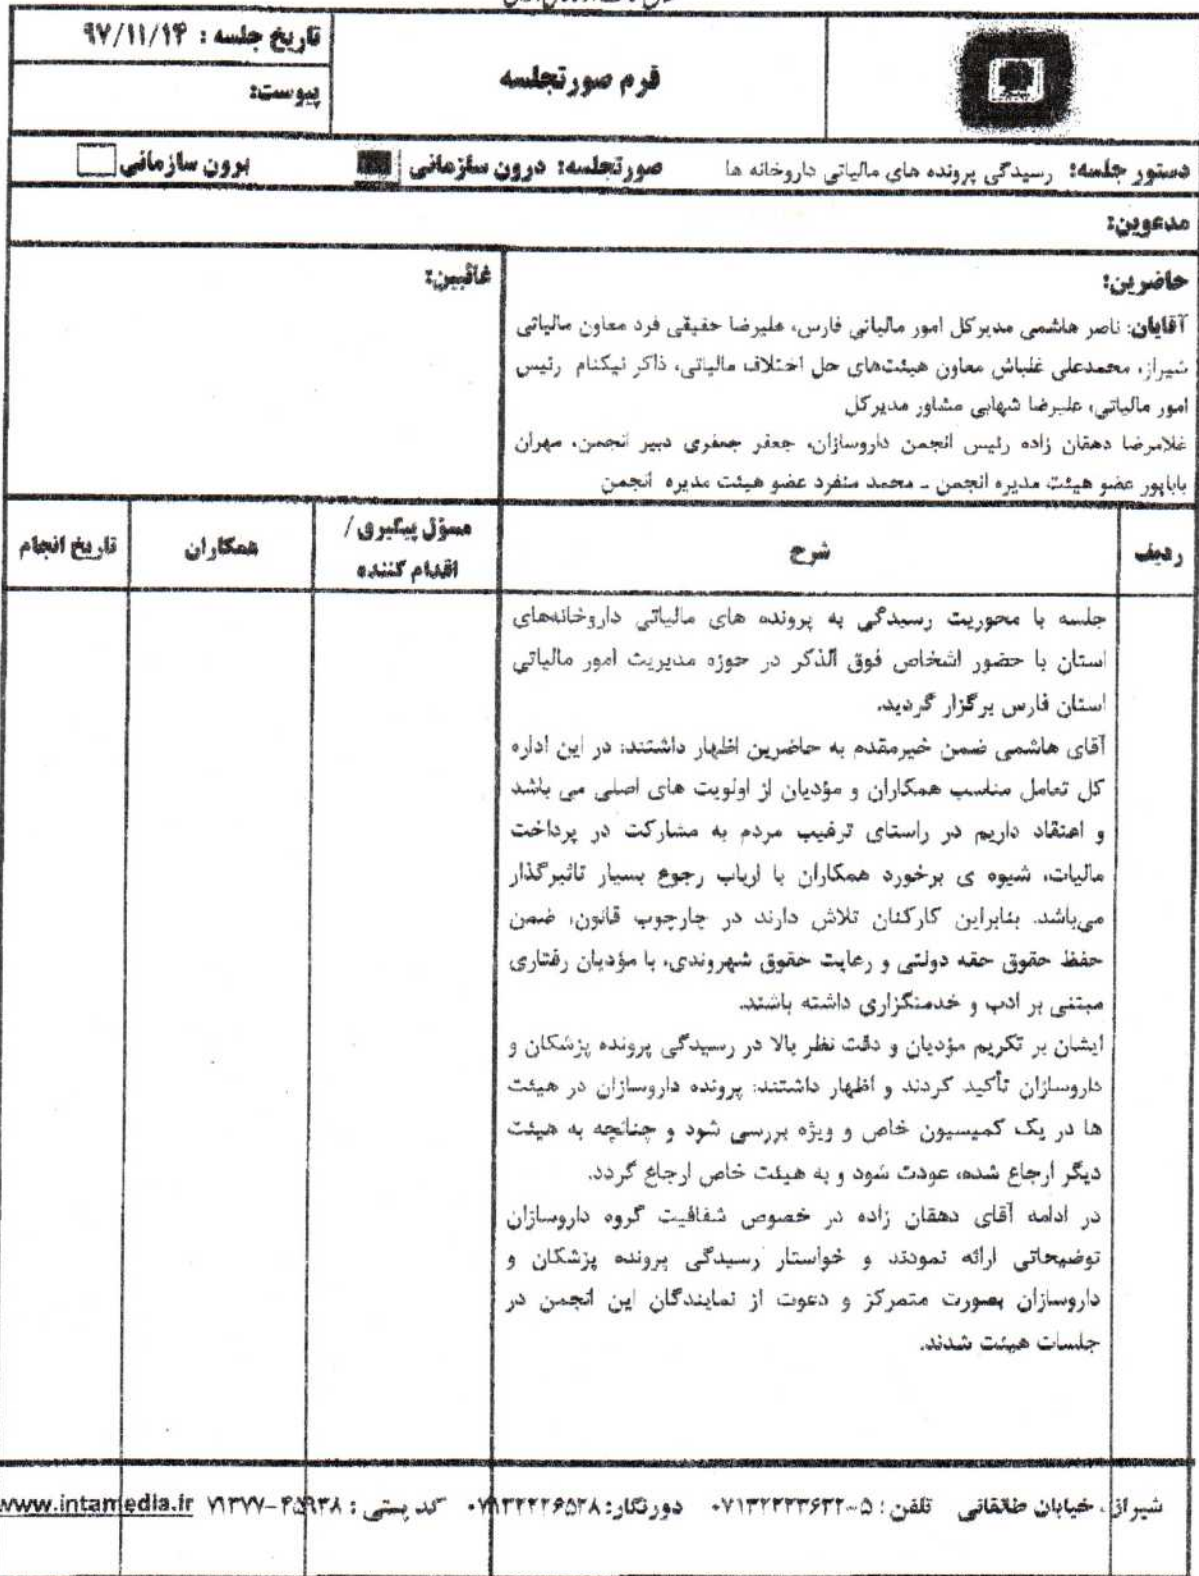 فرم صورتجلسه
تاریخ جلسه : ۹۷/۱۱/۱۴
پیوست:
دستور جلسه: رسیدگی پرونده های مالیاتی داروخانه ها صورتجلسه: درون سازمانی برون سازمانی
مدعوین:
حاضرین:
آقایان: ناصر هاشمی مدیرکل امور مالیاتی فارس، علیرضا حقیقی فرد معاون مالیاتی
شیراز، محمدعلی غلباش معاون هیئت‌های حل اختلاف مالیاتی، ذاکر نیکنام رئیس
امور مالیاتی، علیرضا شهابی مشاور مدیرکل
غلامرضا دهقان زاده رئیس انجمن داروسازان، جعفر جعفری دبیر انجمن، مهران
باباپور عضو هیئت مدیره انجمن ـ محمد منفرد عضو هیئت مدیره انجمن
غائبین:
ردیف
شرح
مسؤل پیگیری /
اقدام کننده
همکاران
تاریخ انجام
جلسه با محوریت رسیدگی به پرونده های مالیاتی داروخانه‌های
استان با حضور اشخاص فوق الذکر در حوزه مدیریت امور مالیاتی
استان فارس برگزار گردید.
آقای هاشمی ضمن خیرمقدم به حاضرین اظهار داشتند: در این اداره
کل تعامل مناسب همکاران و مؤدیان از اولویت های اصلی می باشد
و اعتقاد داریم در راستای ترغیب مردم به مشارکت در پرداخت
مالیات، شیوه ی برخورد همکاران با ارباب رجوع بسیار تاثیرگذار
می‌باشد. بنابراین کارکنان تلاش دارند در چارچوب قانون، ضمن
حفظ حقوق حقه دولتی و رعایت حقوق شهروندی، با مؤدیان رفتاری
مبتنی بر ادب و خدمتگزاری داشته باشند.
ایشان بر تکریم مؤدیان و دقت نظر بالا در رسیدگی پرونده پزشکان و
داروسازان تأکید کردند و اظهار داشتند: پرونده داروسازان در هیئت
ها در یک کمیسیون خاص و ویژه بررسی شود و چنانچه به هیئت
دیگر ارجاع شده، عودت شود و به هیئت خاص ارجاع گردد.
در ادامه آقای دهقان زاده در خصوص شفافیت گروه داروسازان
توضیحاتی ارائه نمودند و خواستار رسیدگی پرونده پزشکان و
داروسازان بصورت متمرکز و دعوت از نمایندگان این انجمن در
جلسات هیئت شدند.
شیراز، خیابان طالقانی تلفن : ۵-۰۷۱۳۲۲۲۳۶۳۲ دورنگار: ۰۷۱۳۲۲۲۶۵۳۸ کد پستی : ۴۵۹۳۸-۷۱۳۷۷ www.intamedia.ir